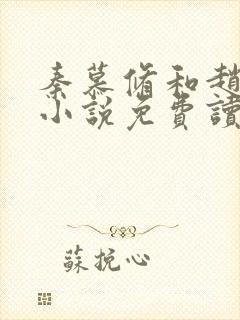 秦慕脩和趙
小說免費讀
蘇挽心